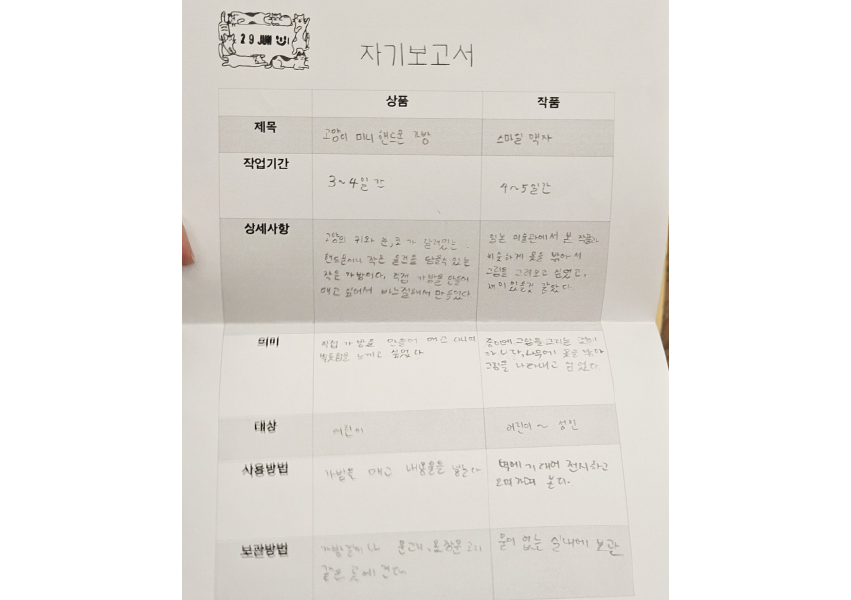 29 JUN
자기보고서
상품 작품
제목 고양이 미니 핸드폰 가방 스마일 액자
작업기간 3~4일간 4~5일간
상세사항
고양이 귀와 눈,코가 달려있는
핸드폰이나 작은 물건을 담을수 있는
작은 가방이다. 직접 가방을 만들어
메고 싶어서 바느질해서 만들었다
읽는 미술관에서 본 작품과
비슷하게 못을 박아서
그림을 그려보고 싶었고,
재미있을것 같았다.
의미
직접 가방을 만들어 메고 다니며
느끼고 싶었다
종이에 그림을 그리는 것이
아니라, 나무에 못을 박아
그림을 나타내고 싶었다.
대상 어린이 어린이 ~ 성인
사용방법
가방을 메고 내용물을 넣는다
벽에 기대어 전시하고
오며가며 본다.
보관방법
가방걸이나 문고리, 옷장문고리
같은 곳에 건다.
물이 없는 실내에 보관